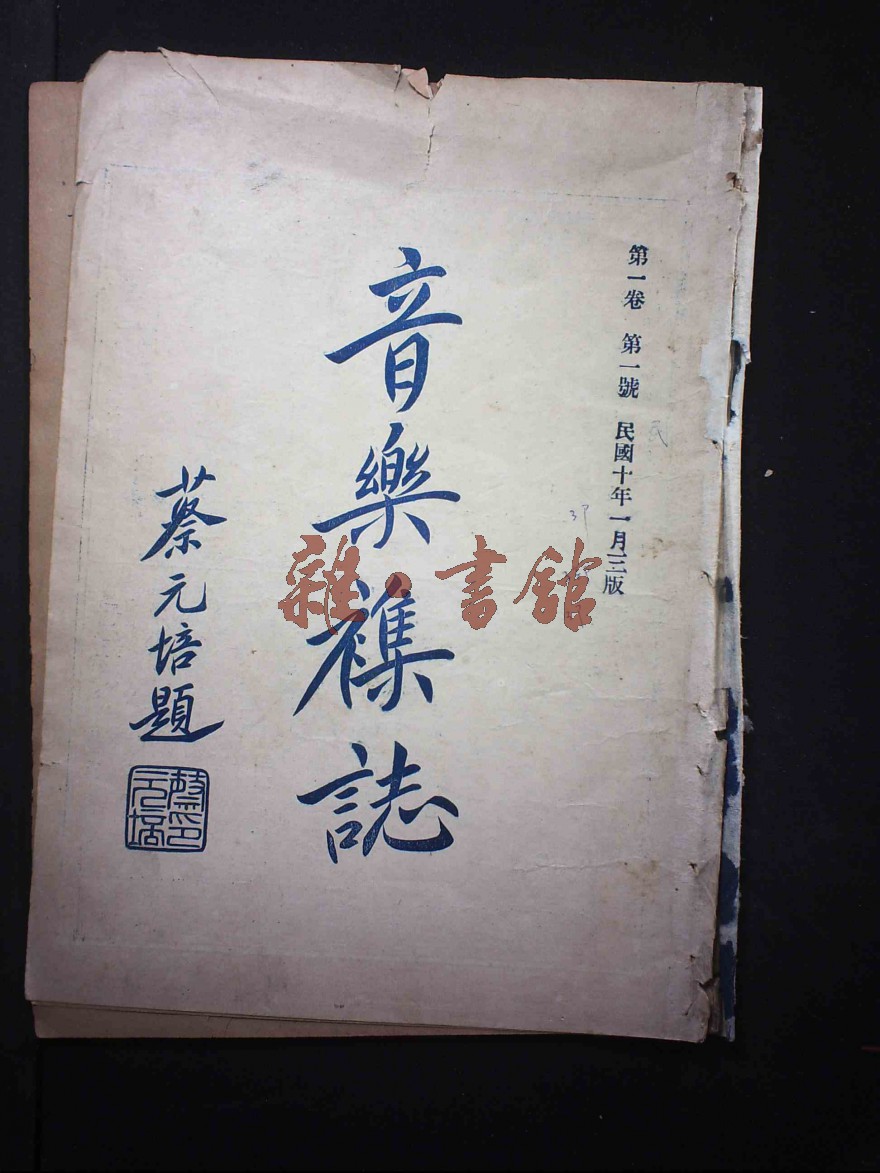 第一卷 第一號 民國十年一月三版
音樂襍誌
蔡元培題
蔡元培印
雜·書館